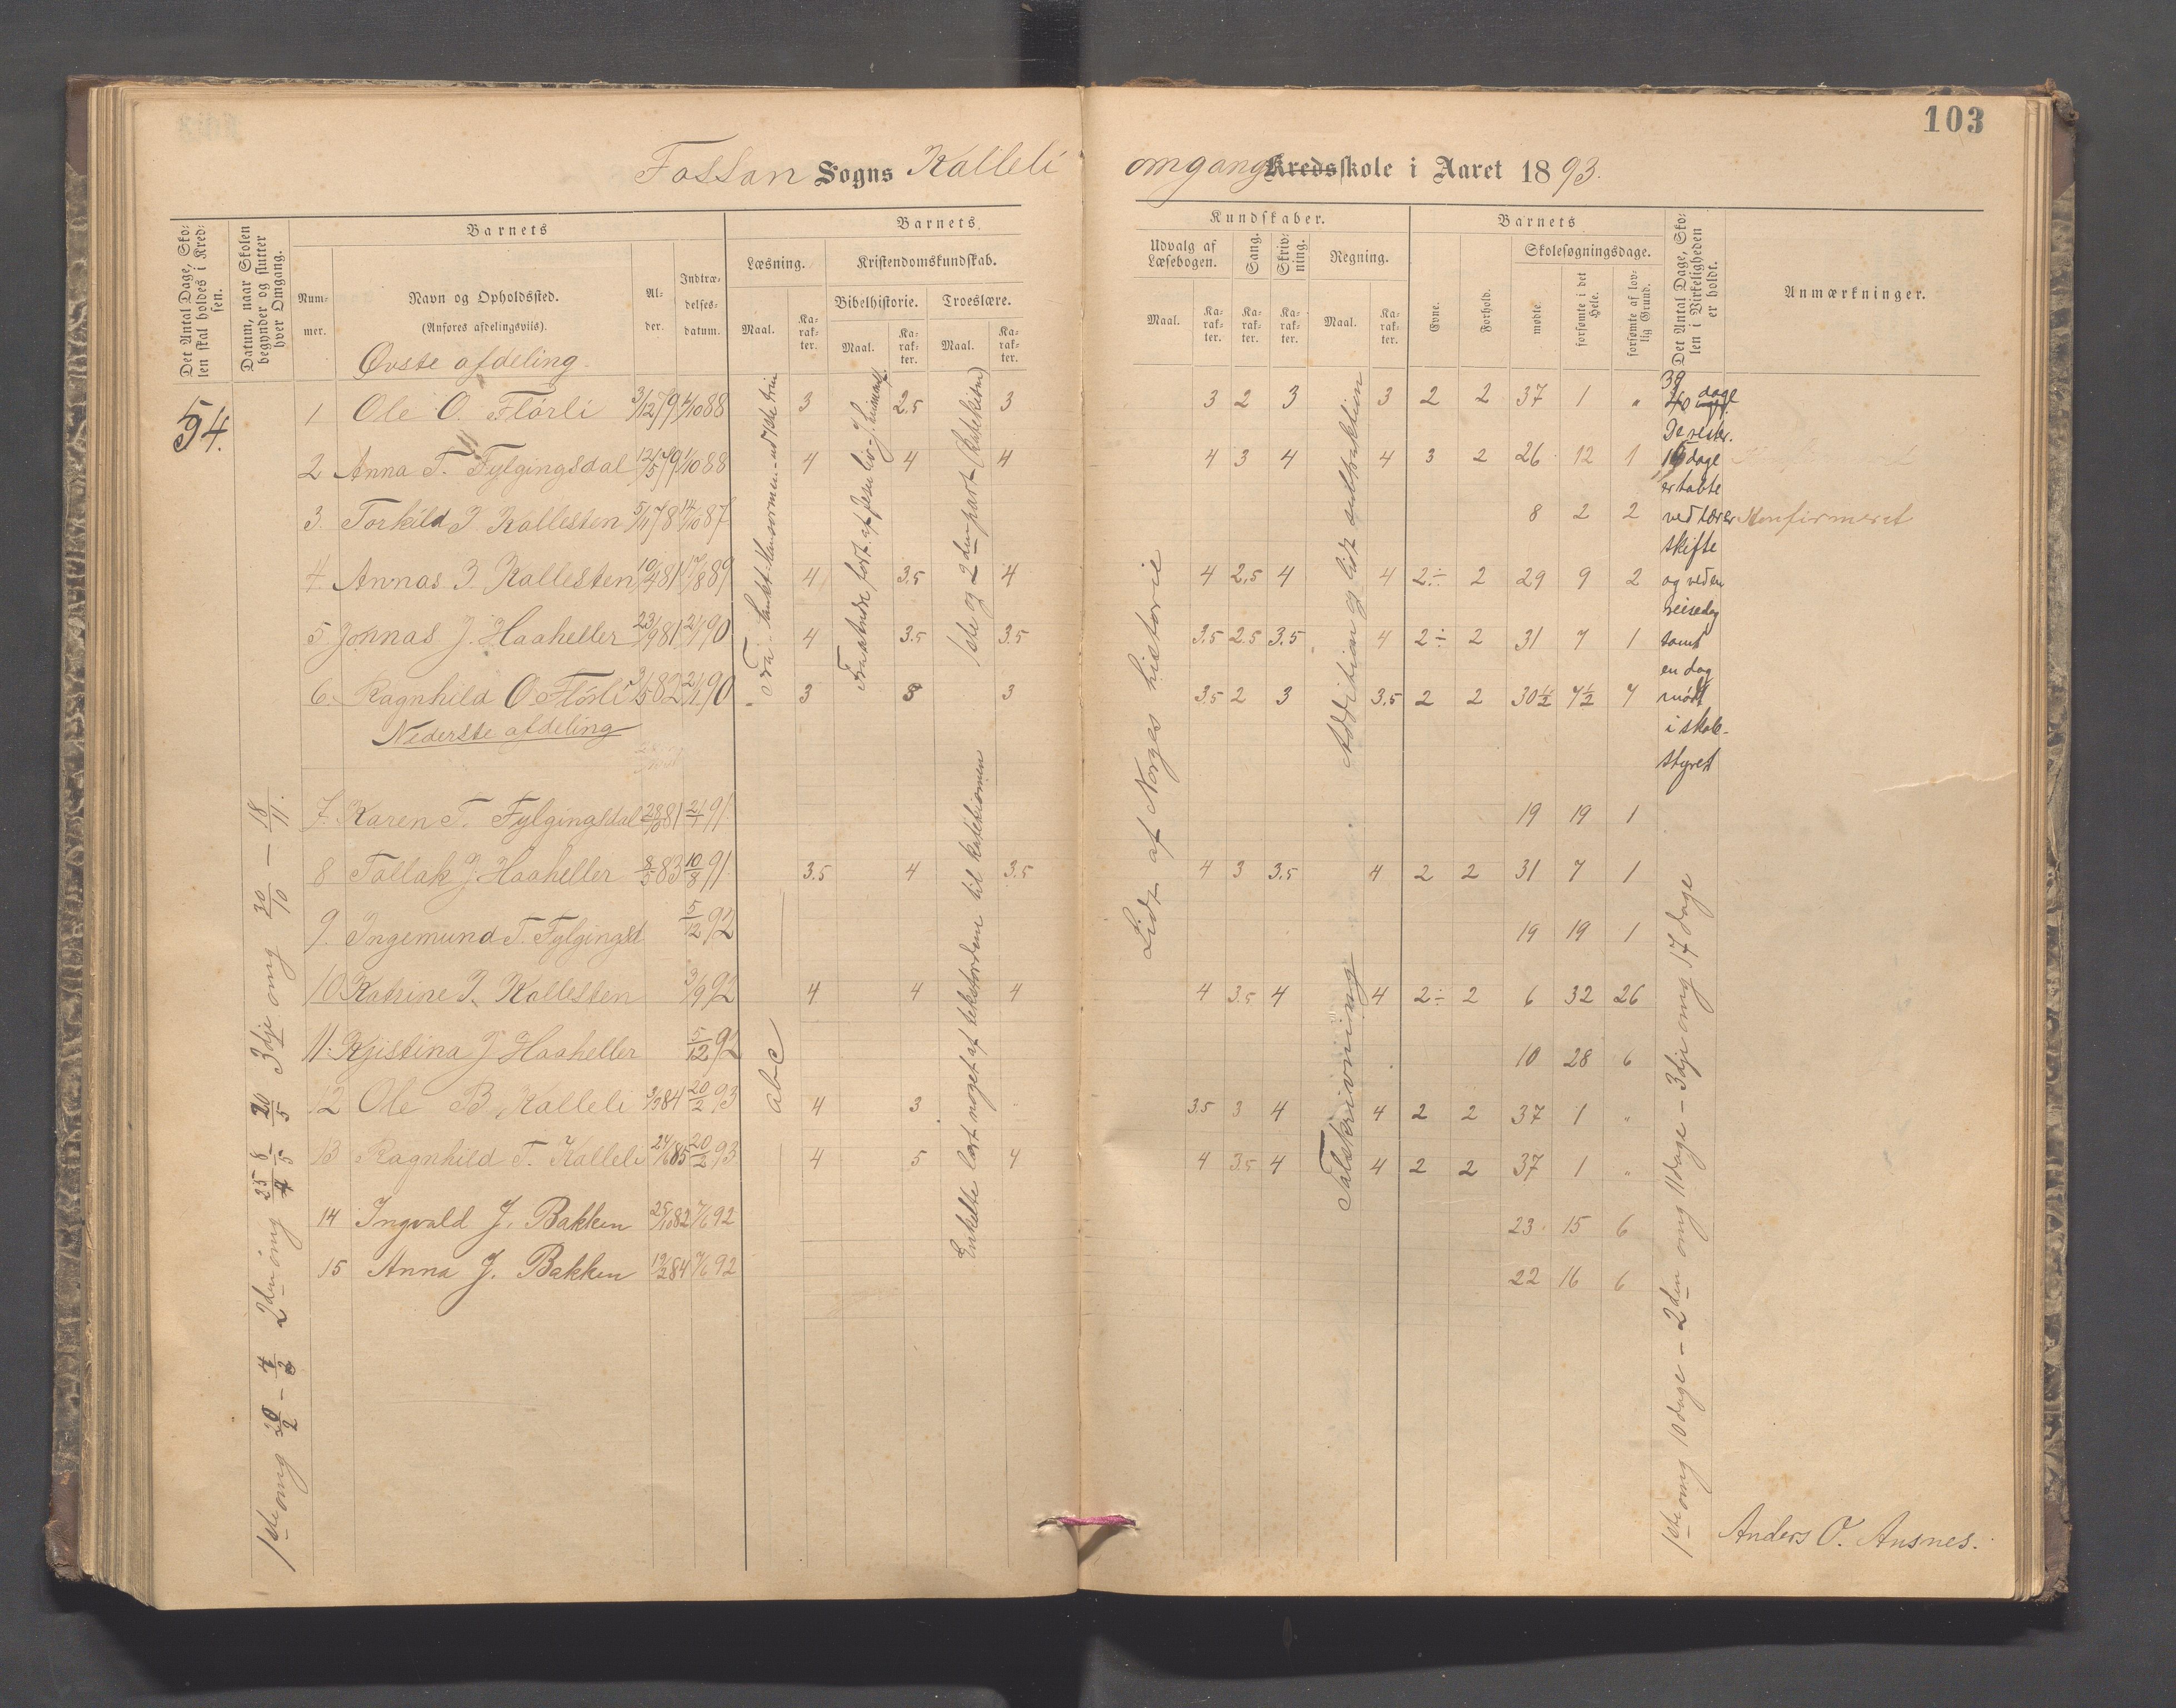 103
Fossan Sogns Kalleli omgangs Kredsskole i Aaret 1893.
Det Antal Dage, Skolen skal holdes i Kredsen.
Datum, naar Skolen begynder og slutter hver Omgang.
Barnets
Nummer.
Navn og Opholdssted.
(Anføres afdelingsviis).
Alder.
Indtrædelsesdatum.
Barnets
Læsning.
Maal.
Karakter.
Kristendomskundskab.
Bibelhistorie.
Maal.
Karakter.
Troeslære.
Maal.
Karakter.
Kundskaber.
Udvalg af Læsebogen.
Maal.
Karakter.
Sang.
Karakter.
Skrivning.
Karakter.
Regning.
Maal.
Karakter.
Barnets
Evne.
Forhold.
Skolesøgningsdage.
mødte.
forsømte i det Hele.
forsømte af lovlig Grund.
Det Antal Dage, Skolen i Virkeligheden er holdt.
Anmærkninger.
Øvste afdeling.
54.
1 Ole O. Florli 3/12 79 1/10 88 3 2.5 3 3 2 3 3 2 2 37 1 "
2 Anna T. Fylgingsdal 12/5 79 1/10 88 4 4 4 4 3 4 4 3 2 26 12 1
3. Torkild J. Kallesten 5/11 78 14/10 87 8 2 2 Konfirmeret
4. Annas J. Kallesten 10/4 81 17/8 89 4 3.5 4 4 2.5 4 4 2÷ 2 29 9 2
5 Jonnas J. Haaheller 23/9 81 21/1 90 4 3.5 3.5 3.5 2.5 3.5 4 2÷ 2 31 7 1
6. Ragnhild O. Flörli 3/5 82 21/1 90 3 3 3 3.5 2 3 3.5 2 2 30½ 7½ 7
Nederste afdeling
7. Karen T. Fylgingsdal 28/10 81 21/1 91. 19 19 1
8 Tallak J. Haaheller 8/5 83 10/8 91. 3.5 4 3.5 4 3 3.5 4 2 2 31 7 1
9. Ingemund T. Fylgingsd 5/12 92 19 19 1
10 Katrine J. Kallesten 3/9 92 4 4 4 4 3.5 4 4 2÷ 2 6 32 26
11. Kristina J. Haaheller 5/12 92 10 28 6
12 Ole B. Kalleli 9/3 84 20/2 93 4 3 3.5 3 4 4 2 2 37 1 "
13 Ragnhild T. Kalleli 24/6 85 20/2 93 4 5 4 4 3.5 4 4 2 2 37 1 "
14 Ingvald J. Bakken 25/10 82 7/6 92 23 15 6
15 Anna J. Bakken 19/2 84 7/6 92 22 16 6
1ste omg 20/2 – 4/3 2den omg 25/4 8/5 20/5 3dje omg 30/10 – 18/11.
abc
1ste og 2den part (Katekismen)
Enkelte lært noget af tekstordene til katekismen
Lidt af Norges historie
Addition og lidt subtraktion
Talskrivning
39
dage
De rester.
15 dage
er tabte
ved lærer
skifte
og ved en
reisedag
samt
en dag
mødt
i skole-
styret
1ste omg 10 dage – 2den omg 11 dage – 3dje omg 17 dage
Anders O. Ausnes.